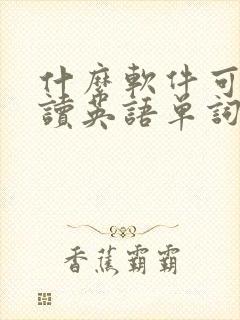 什麼軟件可
讀英語單詞
香蕉霸霸